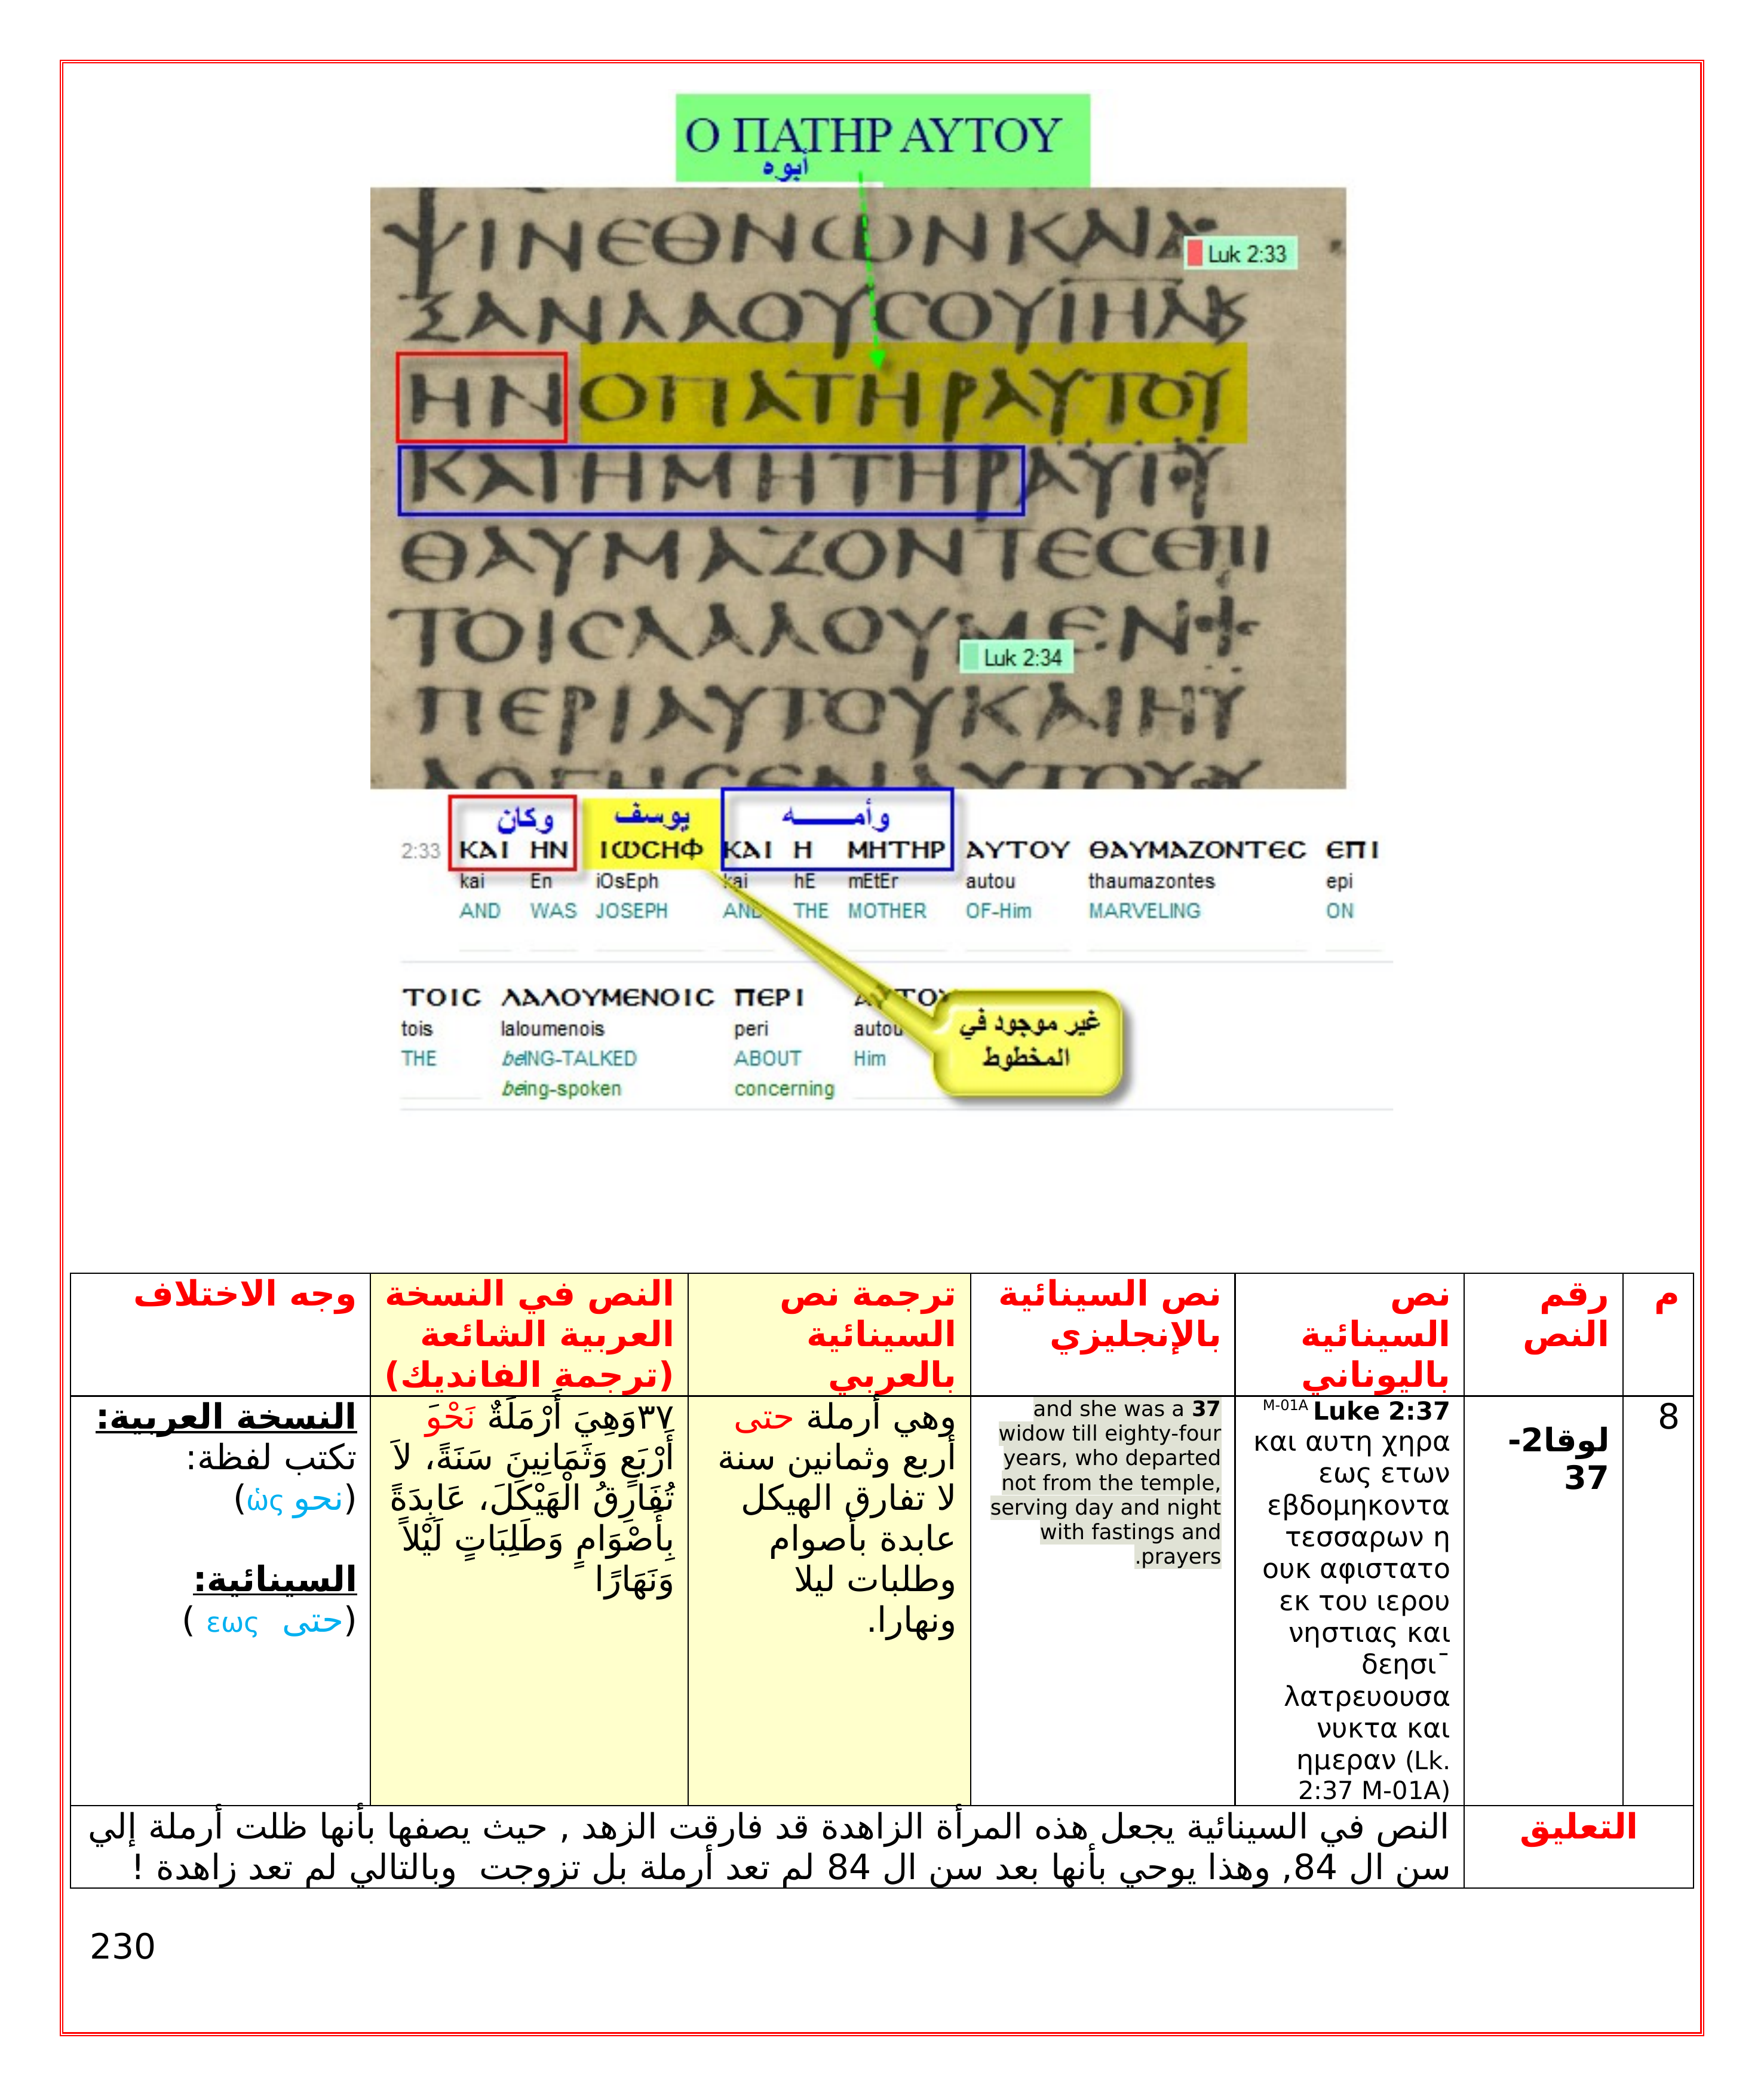 Ο ΠΑΤΗΡ ΑΥΤΟΥ
أبوه
ΨΙΝΕΘΝΩΝΚΑΙΔ
Luk 2:33
ΞΑΝΛΑΟΥCΟΥΙΗΛΚ
ΗΝΟΠΑΤΗΡΑΥΤΟΥ
ΚΑΙΗΜΗΤΗΡΑΥΤΟΥ
ΘΑΥΜΑΖΟΝΤΕCΕΠΙ
ΤΟΙCΛΑΛΟΥΜΕΝ
Luk 2:34
ΠΕΡΙΑΥΤΟΥΚΑΙΗΥ
ΛΟΓΗCΕΝΑΥΤΟΥ
وكان يوسف وأمــــه
2:33 ΚΑΙ ΗΝ ΙΩCΗΦ ΚΑΙ Η ΜΗΤΗΡ ΑΥΤΟΥ ΘΑΥΜΑΖΟΝΤΕC ΕΠΙ
kai En iOsEph kai hE mEtEr autou thaumazontes epi
AND WAS JOSEPH AND THE MOTHER OF-Him MARVELING ON
ΤΟΙC ΛΑΛΟΥΜΕΝΟΙC ΠΕΡΙ ΑΥΤΟΥ
tois laloumenois peri autou
THE beING-TALKED ABOUT Him
being-spoken concerning
غير موجود في
المخطوط
م
رقم
النص
نص
السينائية
باليوناني
نص السينائية
بالإنجليزي
ترجمة نص
السينائية
بالعربي
النص في النسخة
العربية الشائعة
(ترجمة الفانديك)
وجه الاختلاف
8
لوقا2-
37
M-01A Luke 2:37
και αυτη χηρα
εως ετων
εβδομηκοντα
τεσσαρων η
ουκ αφιστατο
εκ του ιερου
νηστιας και
δεησι¯
λατρευουσα
νυκτα και
ημεραν (Lk.
2:37 M-01A)
37 and she was a
widow till eighty-four
years, who departed
not from the temple,
serving day and night
with fastings and
prayers.
وهي أرملة حتى
أربع وثمانين سنة
لا تفارق الهيكل
عابدة بأصوام
وطلبات ليلا
ونهارا.
٣٧وَهِيَ أَرْمَلَةٌ نَحْوَ
أَرْبَعٍ وَثَمَانِينَ سَنَةً، لاَ
تُفَارِقُ الْهَيْكَلَ، عَابِدَةً
بِأَصْوَامٍ وَطَلِبَاتٍ لَيْلاً
وَنَهَارًا
النسخة العربية:
تكتب لفظة:
(نحو ὡς)
السينائية:
(حتى εως )
التعليق
النص في السينائية يجعل هذه المرأة الزاهدة قد فارقت الزهد , حيث يصفها بأنها ظلت أرملة إلي
سن ال 84, وهذا يوحي بأنها بعد سن ال 84 لم تعد أرملة بل تزوجت وبالتالي لم تعد زاهدة !
230